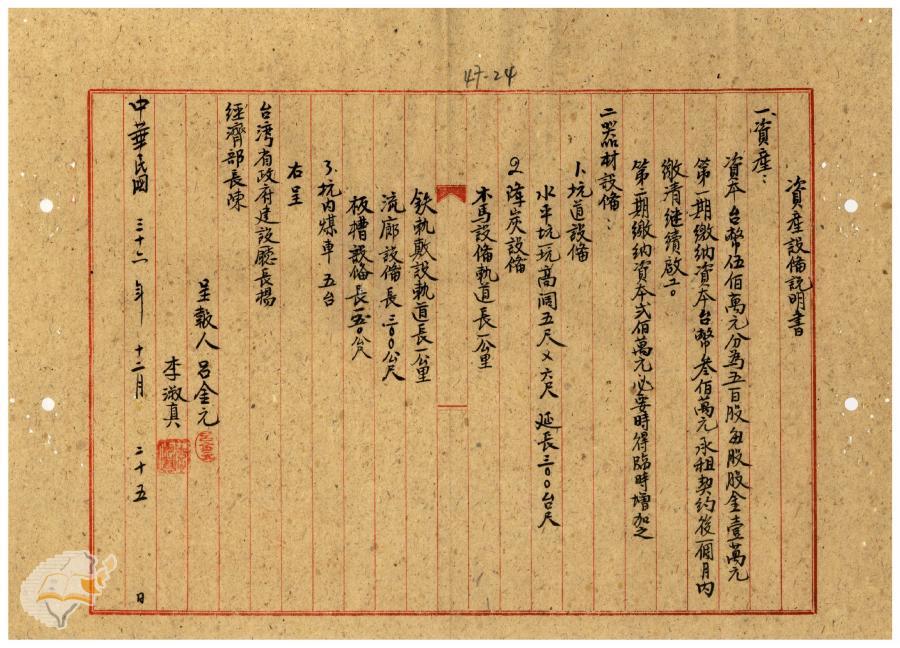 47-24
資産設備説明書
一、資産：
資本台幣伍佰萬元分為五百股每股股金壹萬元
第一期繳納資本台幣叁佰萬元承租契約後一個月內
繳清继續啟工。
第二期繳納資本弍佰萬元必要時得臨時增加之
二、器材設備：
1、坑道設備
水平坑一坑高濶五尺×六尺 延長三〇〇台尺
2、降炭設備
木馬設備軌道長一公里
鉄軌敷設軌道長一公里
流廊設備長三〇〇公尺
板槽設備長一五〇公尺
3、坑内煤車 五台
右呈
台湾省政府建設廳長楊
經濟部長陳
呈報人 呂金元
李淑真
中華民國 三十六年 十二月 二十五日